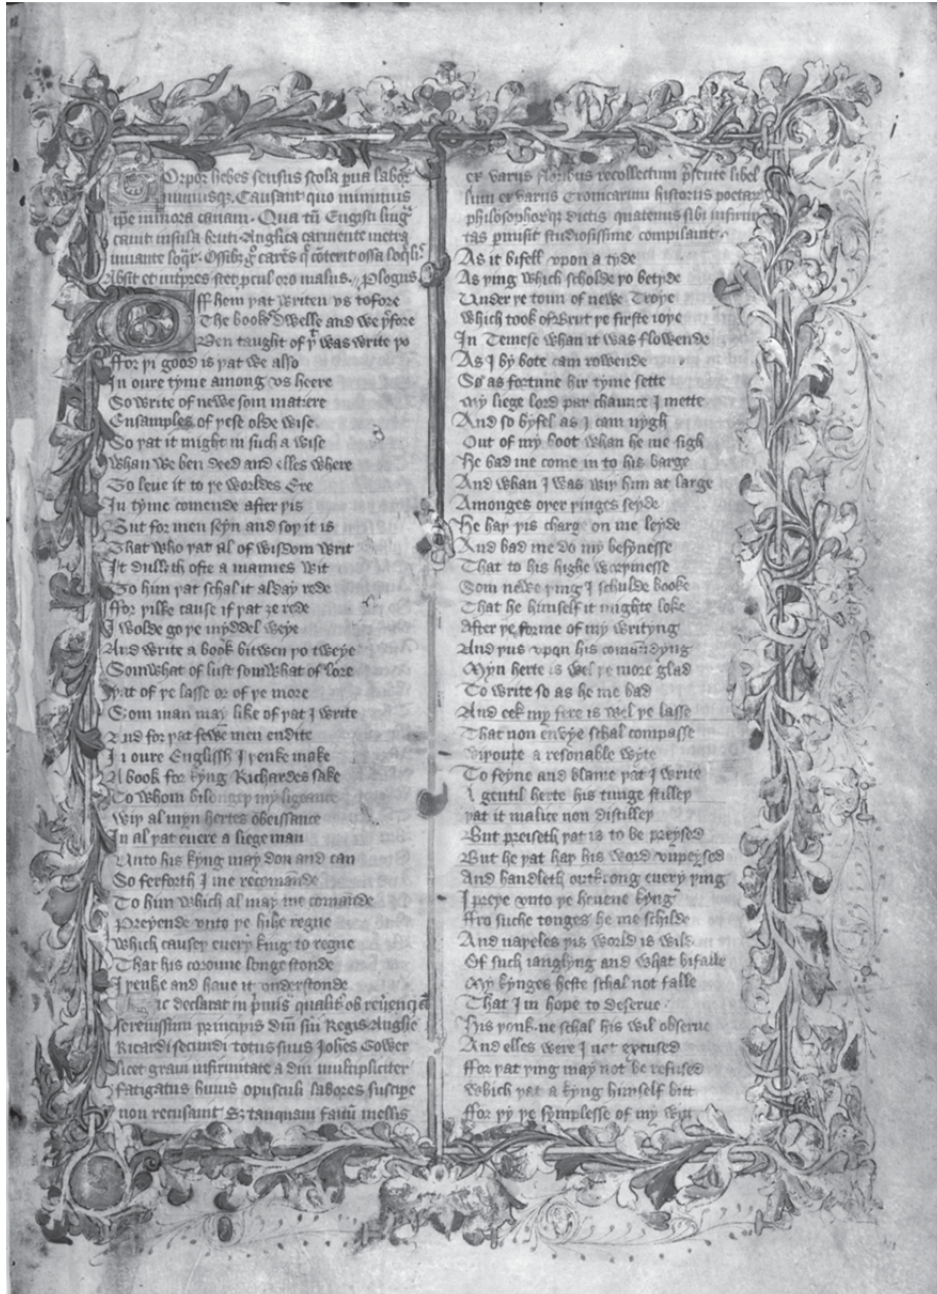 Torpor hebes sensus scola parua labor
minimusq; Causant quo minimus
ipe minora canam. Qua tū Engisti lingᵃ
canit insula bruti Anglica carmente metra
iuuante loqr. Ossibꝫ gͦ carēs q̄ cōterit ossa loqlis
Absit et intpres stet pcul oro malus. // Plogus
Off hem þat writen vs tofore
The bookes dwelle and we þfore
Ben taught of þᵗ was write þo
ffor þi good is þat we also
In oure tyme among vs heere
So write of newe som matiere
Ensamples of þese olde wise
So þat it might in such a wise
Whan we ben deed and elles where
To leue it to þe worldes Ere
In tyme comende after þis
But for men seyn and soþ it is
That who þat al of wisdom writ
It dulleth ofte a mannes wit
To him þat schal it alday rede
ffor þilke cause if þat ȝe rede
I wolde go þe myddel weye
And write a book bitwen þo tweye
Somwhat of lust somwhat of lore
þat of þe lasse or of þe more
Som man may like of þat I write
And for þat fewe men endite
In oure Englissh I þenke make
A book for kyng Richardes sake
To whom bilongeþ my ligeance
Wiþ al myn hertes obeissance
In al þat euere a liege man
Unto his kyng may don and can
So ferforth I me recomāde
To him which al may me comāde
Preyende vnto þe hihe regne
Which causeþ euery king to regne
That his coroune longe stonde
I þenke and haue it vnderstonde
Hic declarat in pͥmis qualiť ob reūenciā
serenissimi principis dn̄i sui Regis Anglie
Ricardi secundi totus suus Joħes Gower
licet graui infirmitate a diu multipliciter
fatigatus huius opusculi labores suscipe
non recusauit Sꝫ tanquam fauū mellis
ex varijs floribus recollectum pͥsente libel
lum ex varijs Cronicarum historijs poetarᵘ
philosophorᵘqꝫ dictis quatenus sibi infirmi
tas pmisit studiosissime compilauit
As it bifell vpon a tyde
As þing which scholde þo betyde
Under þe toun of newe Troye
Which took of Brut þe firste ioye
In Temese whan it was flowende
As I by bote cam rowende
So as fortune hir tyme sette
My liege lord par chaunce I mette
And so byfel as I cam nygh
Out of my boot whan he me sigh
He bad me come in to his barge
And whan I was wiþ him at large
Amonges oþer þinges seyde
He haþ þis charge on me leyde
And bad me do my besynesse
That to his highe worþinesse
Som newe þing I schulde booke
That he himself it mighte loke
After þe forme of my writyng
And þus vpon his comandyng
Myn herte is wel þe more glad
To write so as he me bad
And eek my fere is wel þe lasse
That non enuye schal compasse
Wiþoute a resonable wyte
To feyne and blame þat I write
A gentil herte his tunge stilleþ
þat it malice non distilleþ
But preiseth þat is to be preysed
But he þat haþ his word vnpeysed
And handleth outwrong euery þing
I preye vnto þe heuene kyng
ffro suche tonges he me schilde
And naþeles þis world is wilde
Of such ianglyng and what bifalle
My kynges heste schal not falle
That I in hope to deserue
His þonk ne schal his wil obserue
And elles were I not excused
ffor þat þing may not be refused
Which þat a kyng himself bitt
ffor þy þe symplesse of my witt